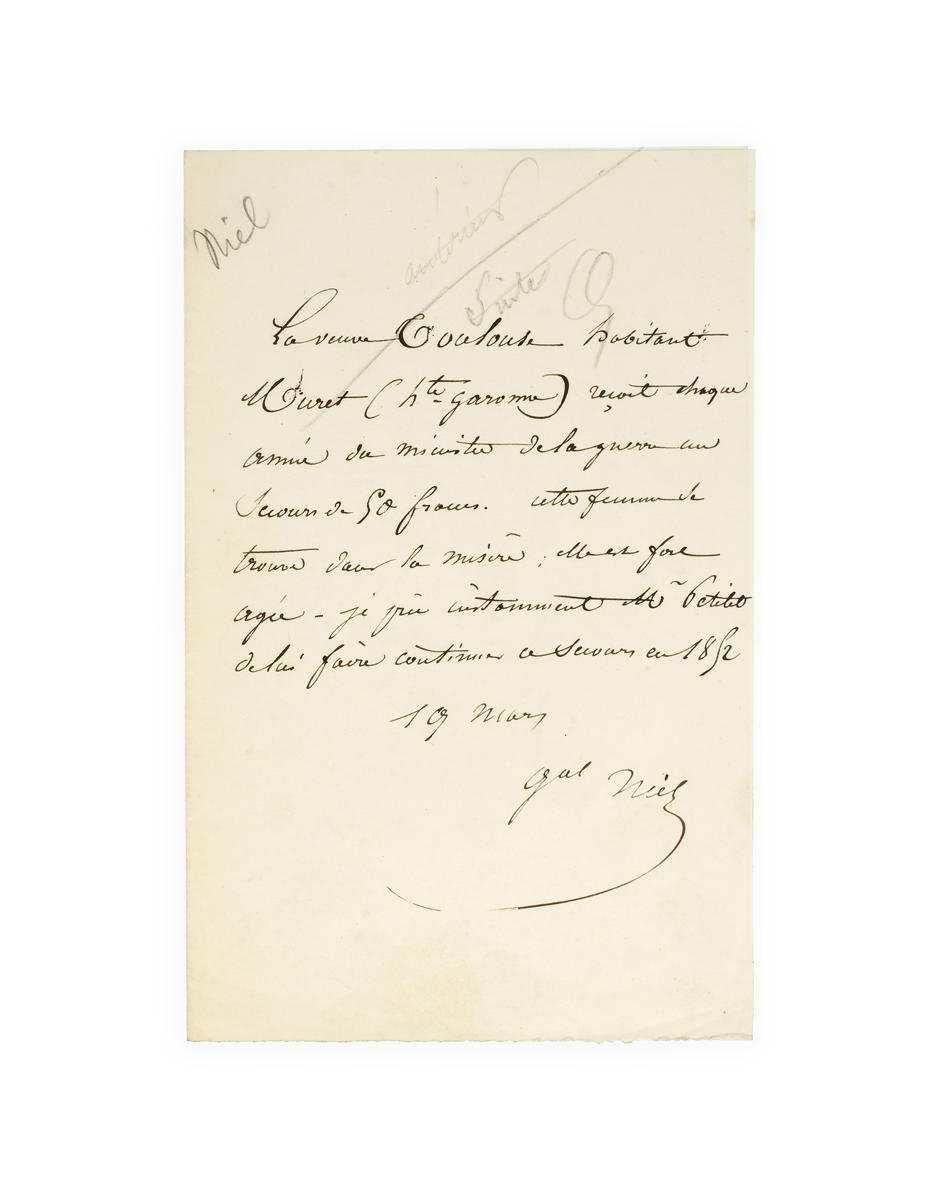 Niel
Suite
La veuve Toulouse habitant
Muret (hte Garonne) reçoit chaque
année du ministre de la guerre un
Secours de 50 francs. cette femme se
trouve dans la misère ; elle est fort
agée - je prie instamment Mr Petitet
de lui faire continuer ce secours en 1852
19 Mars
Gal Niel